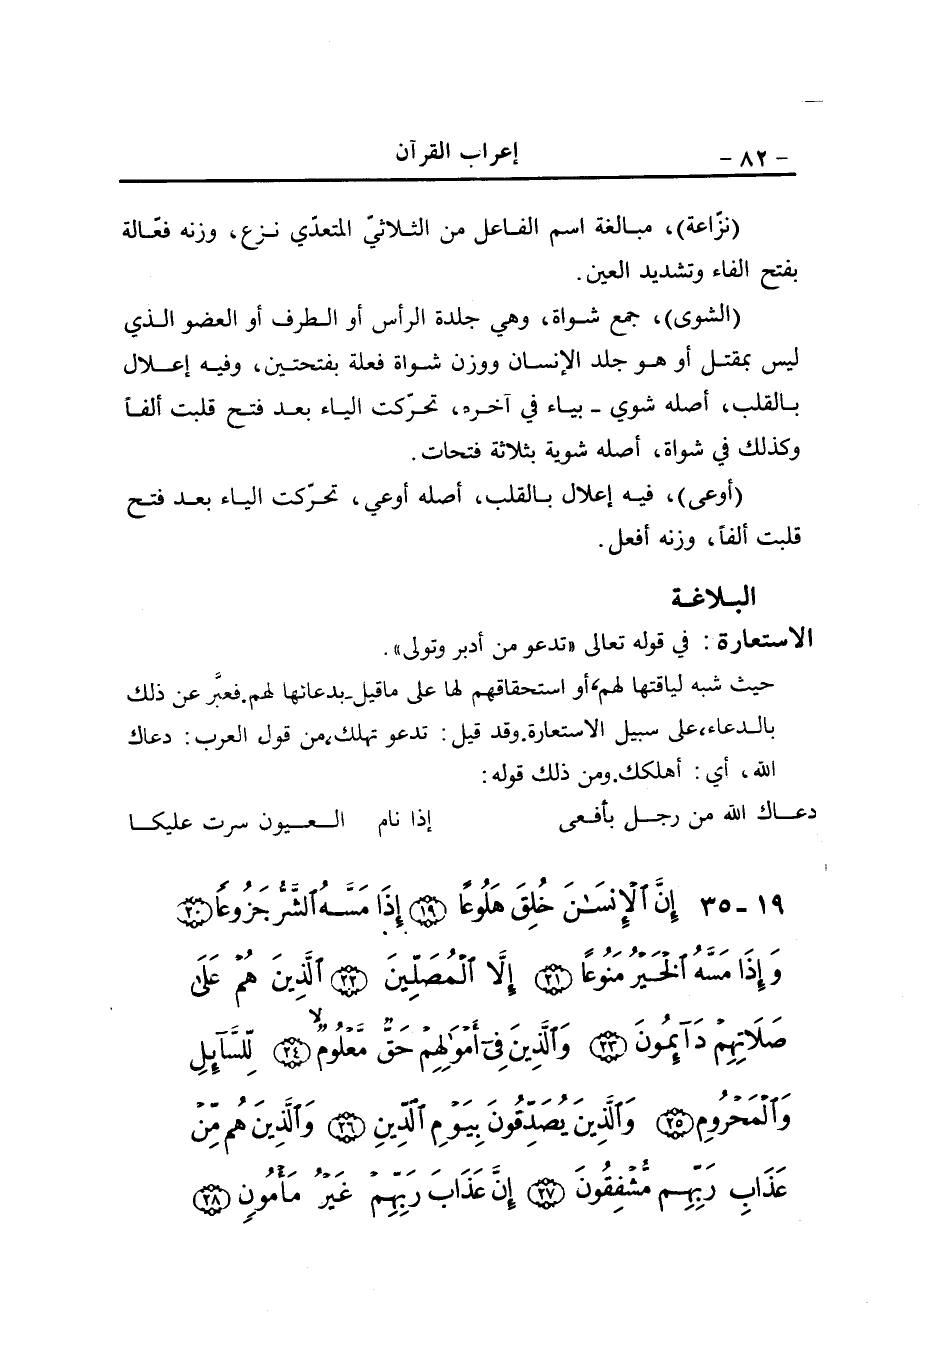 - ٨٢ - إعراب القرآن
(نزّاعة)، مبالغة اسم الفاعل من الثلاثيّ المتعدّي نزع، وزنه فعّالة
بفتح الفاء وتشديد العين.
(الشوى)، جمع شواة، وهي جلدة الرأس أو الطرف أو العضو الذي
ليس بمقتل أو هو جلد الإنسان ووزن شواة فعلة بفتحتين، وفيه إعلال
بالقلب، أصله شوي - بياء في آخره، تحرّكت الياء بعد فتح قلبت ألفاً
وكذلك في شواة، أصله شوية بثلاثة فتحات.
(أوعى)، فيه إعلال بالقلب، أصله أوعي، تحرّكت الياء بعد فتح
قلبت ألفاً، وزنه أفعل.
البلاغة
الاستعارة: في قوله تعالى «تدعو من أدبر وتولى».
حيث شبه لياقتها لهم، أو استحقاقهم لها على ماقيل-بدعائها لهم. فعبَّر عن ذلك
بالدعاء، على سبيل الاستعارة. وقد قيل: تدعو تهلك، من قول العرب: دعاك
الله، أي: أهلكك. ومن ذلك قوله:
دعاك الله من رجل بأفعى إذا نام العيون سرت عليكا
١٩ - ٣٥ إِنَّ ٱلْإِنسَـٰنَ خُلِقَ هَلُوعًا ١٩ إِذَا مَسَّهُ ٱلشَّرُّ جَزُوعًا ٢٠
وَإِذَا مَسَّهُ ٱلْخَيْرُ مَنُوعًا ٢١ إِلَّا ٱلْمُصَلِّينَ ٢٢ ٱلَّذِينَ هُمْ عَلَىٰ
صَلَاتِهِمْ دَآئِمُونَ ٢٣ وَٱلَّذِينَ فِىٓ أَمْوَٰلِهِمْ حَقٌّ مَّعْلُومٌ ۙ ٢٤ لِّلسَّآئِلِ
وَٱلْمَحْرُومِ ٢٥ وَٱلَّذِينَ يُصَدِّقُونَ بِيَوْمِ ٱلدِّينِ ٢٦ وَٱلَّذِينَ هُم مِّنْ
عَذَابِ رَبِّهِم مُّشْفِقُونَ ٢٧ إِنَّ عَذَابَ رَبِّهِمْ غَيْرُ مَأْمُونٍ ٢٨